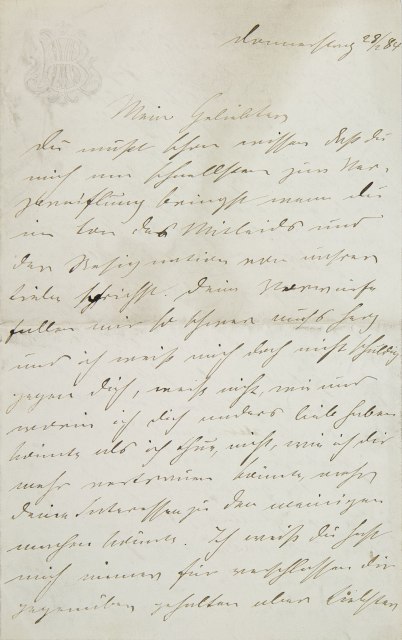 Donnerstag 28/2 84
Mein Geliebter
Du mußt schon wissen daß du
mich am schnellsten zur Ver-
zweiflung bringst wenn du
im Ton des Mitleids und
der Resignation von unsrer
Liebe sprichst. Deine Vorwürfe
fallen mir so schwer aufs Herz
und ich weiß mich doch nicht schuldig
gegen dich, weiß nicht, wie und
worin ich dich anders lieb haben
könnte als ich thue, nicht, wie ich dir
mehr vertrauen könnte, mehr
deine Interessen zu den meinigen
machen könnte. Ich weiß du hast
mich immer für verschlossen dir
gegenüber gehalten aber Liebster